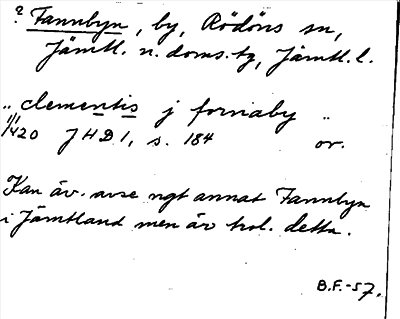 ? Fannbyn, by, Rödöns sn,
Jämtl. n. doms. tg, Jämtl. l.
„ clementis j fornaby „
1/1 1420 JHD 1, s. 184 or.
Kan äv. avse ngt annat Fannbyn
i Jämtland men är trol. detta.
B.F.-57.